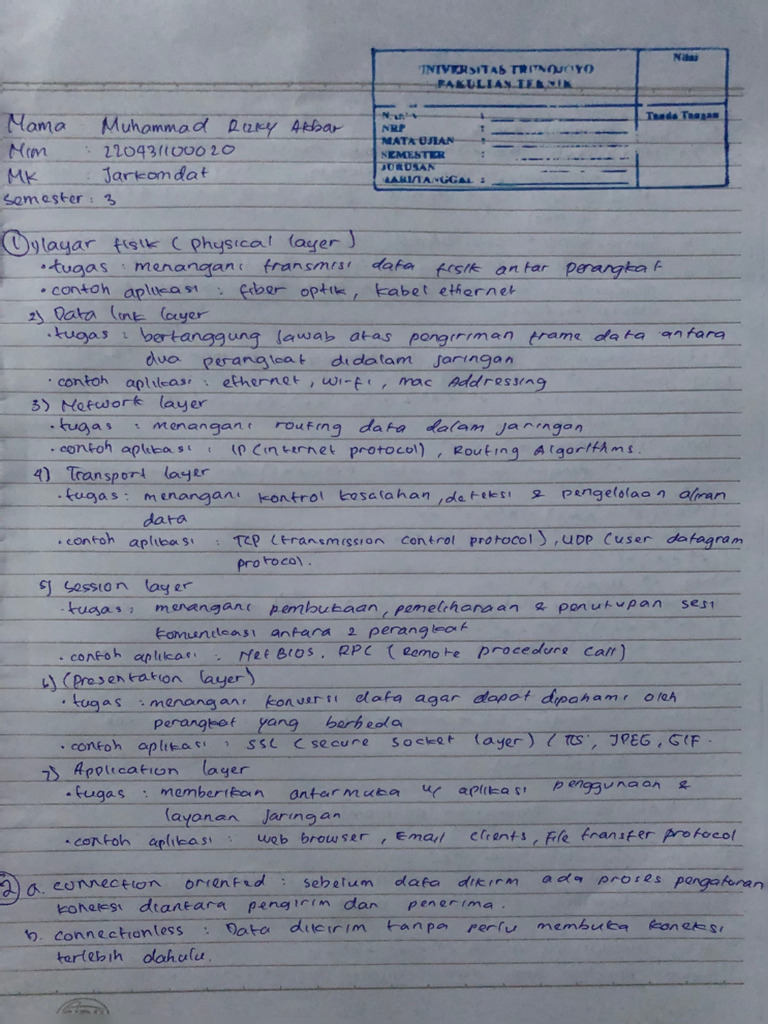 UNIVERSITAS TRUNOJOYO
FAKULTAS TEKNIK
Nilai
NAMA :
NRP :
MATA UJIAN :
SEMESTER :
JURUSAN
HARI/TANGGAL :
Tanda Tangan
Nama : Muhammad Rizky Akbar
Nim : 220431100020
MK : Jarkomdat
Semester : 3
1 1) layar fisik (physical layer)
• tugas : menangani transmisi data fisik antar perangkat
• contoh aplikasi : fiber optik, kabel ethernet
2) Data link layer
• tugas : bertanggung jawab atas pengiriman frame data antara
dua perangkat didalam jaringan
• contoh aplikasi : ethernet, Wi-fi, mac Addressing
3) Network layer
• tugas : menangani routing data dalam jaringan
• contoh aplikasi : IP (internet protocol), Routing Algorithms.
4) Transport layer
• tugas : menangani kontrol kesalahan, deteksi & pengelolaan aliran
data
• contoh aplikasi : TCP (transmission control protocol), UDP (user datagram
protocol.
5) Session layer
• tugas : menangani pembukaan, pemeliharaan & penutupan sesi
komunikasi antara 2 perangkat
• contoh aplikasi : NetBIOS, RPC (Remote procedure call)
6) (Presentation layer)
• tugas : menangani konversi data agar dapat dipahami oleh
perangkat yang berbeda
• contoh aplikasi : SSL (secure socket layer) / TLS, JPEG, GIF.
7) Application layer
• tugas : memberikan antarmuka u/ aplikasi penggunaan &
layanan jaringan
• contoh aplikasi : web browser, Email clients, File transfer protocol
2 a. connection oriented : sebelum data dikirm ada proses pengaturan
koneksi diantara pengirim dan penerima.
b. connectionless : Data dikirim tanpa perlu membuka koneksi
terlebih dahulu.